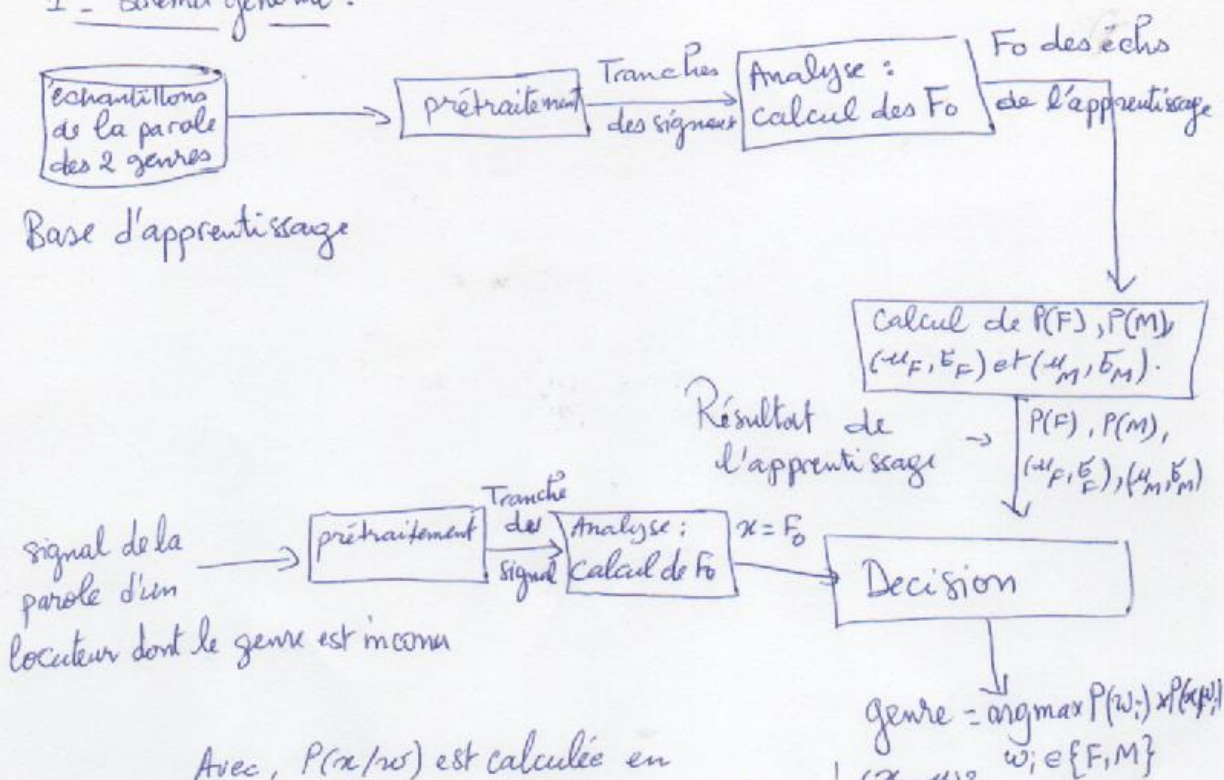 1 - Schéma général :
échantillons
de la parole
des 2 genres
Base d'apprentissage
prétraitement
Tranches
des signaux
Analyse :
calcul des F₀
F₀ des échs
de l'apprentissage
Calcul de P(F), P(M),
(μ_F, σ_F) et (μ_M, σ_M).
Résultat de
l'apprentissage
P(F), P(M),
(μ_F, σ_F), (μ_M, σ_M)
signal de la
parole d'un
locuteur dont le genre est inconnu
prétraitement
Tranche
du
signal
Analyse :
calcul de F₀
x = F₀
Decision
genre = argmax P(w_i) × P(x/w_i)
w_i ∈ {F, M}
Avec, P(x/w) est calculée en